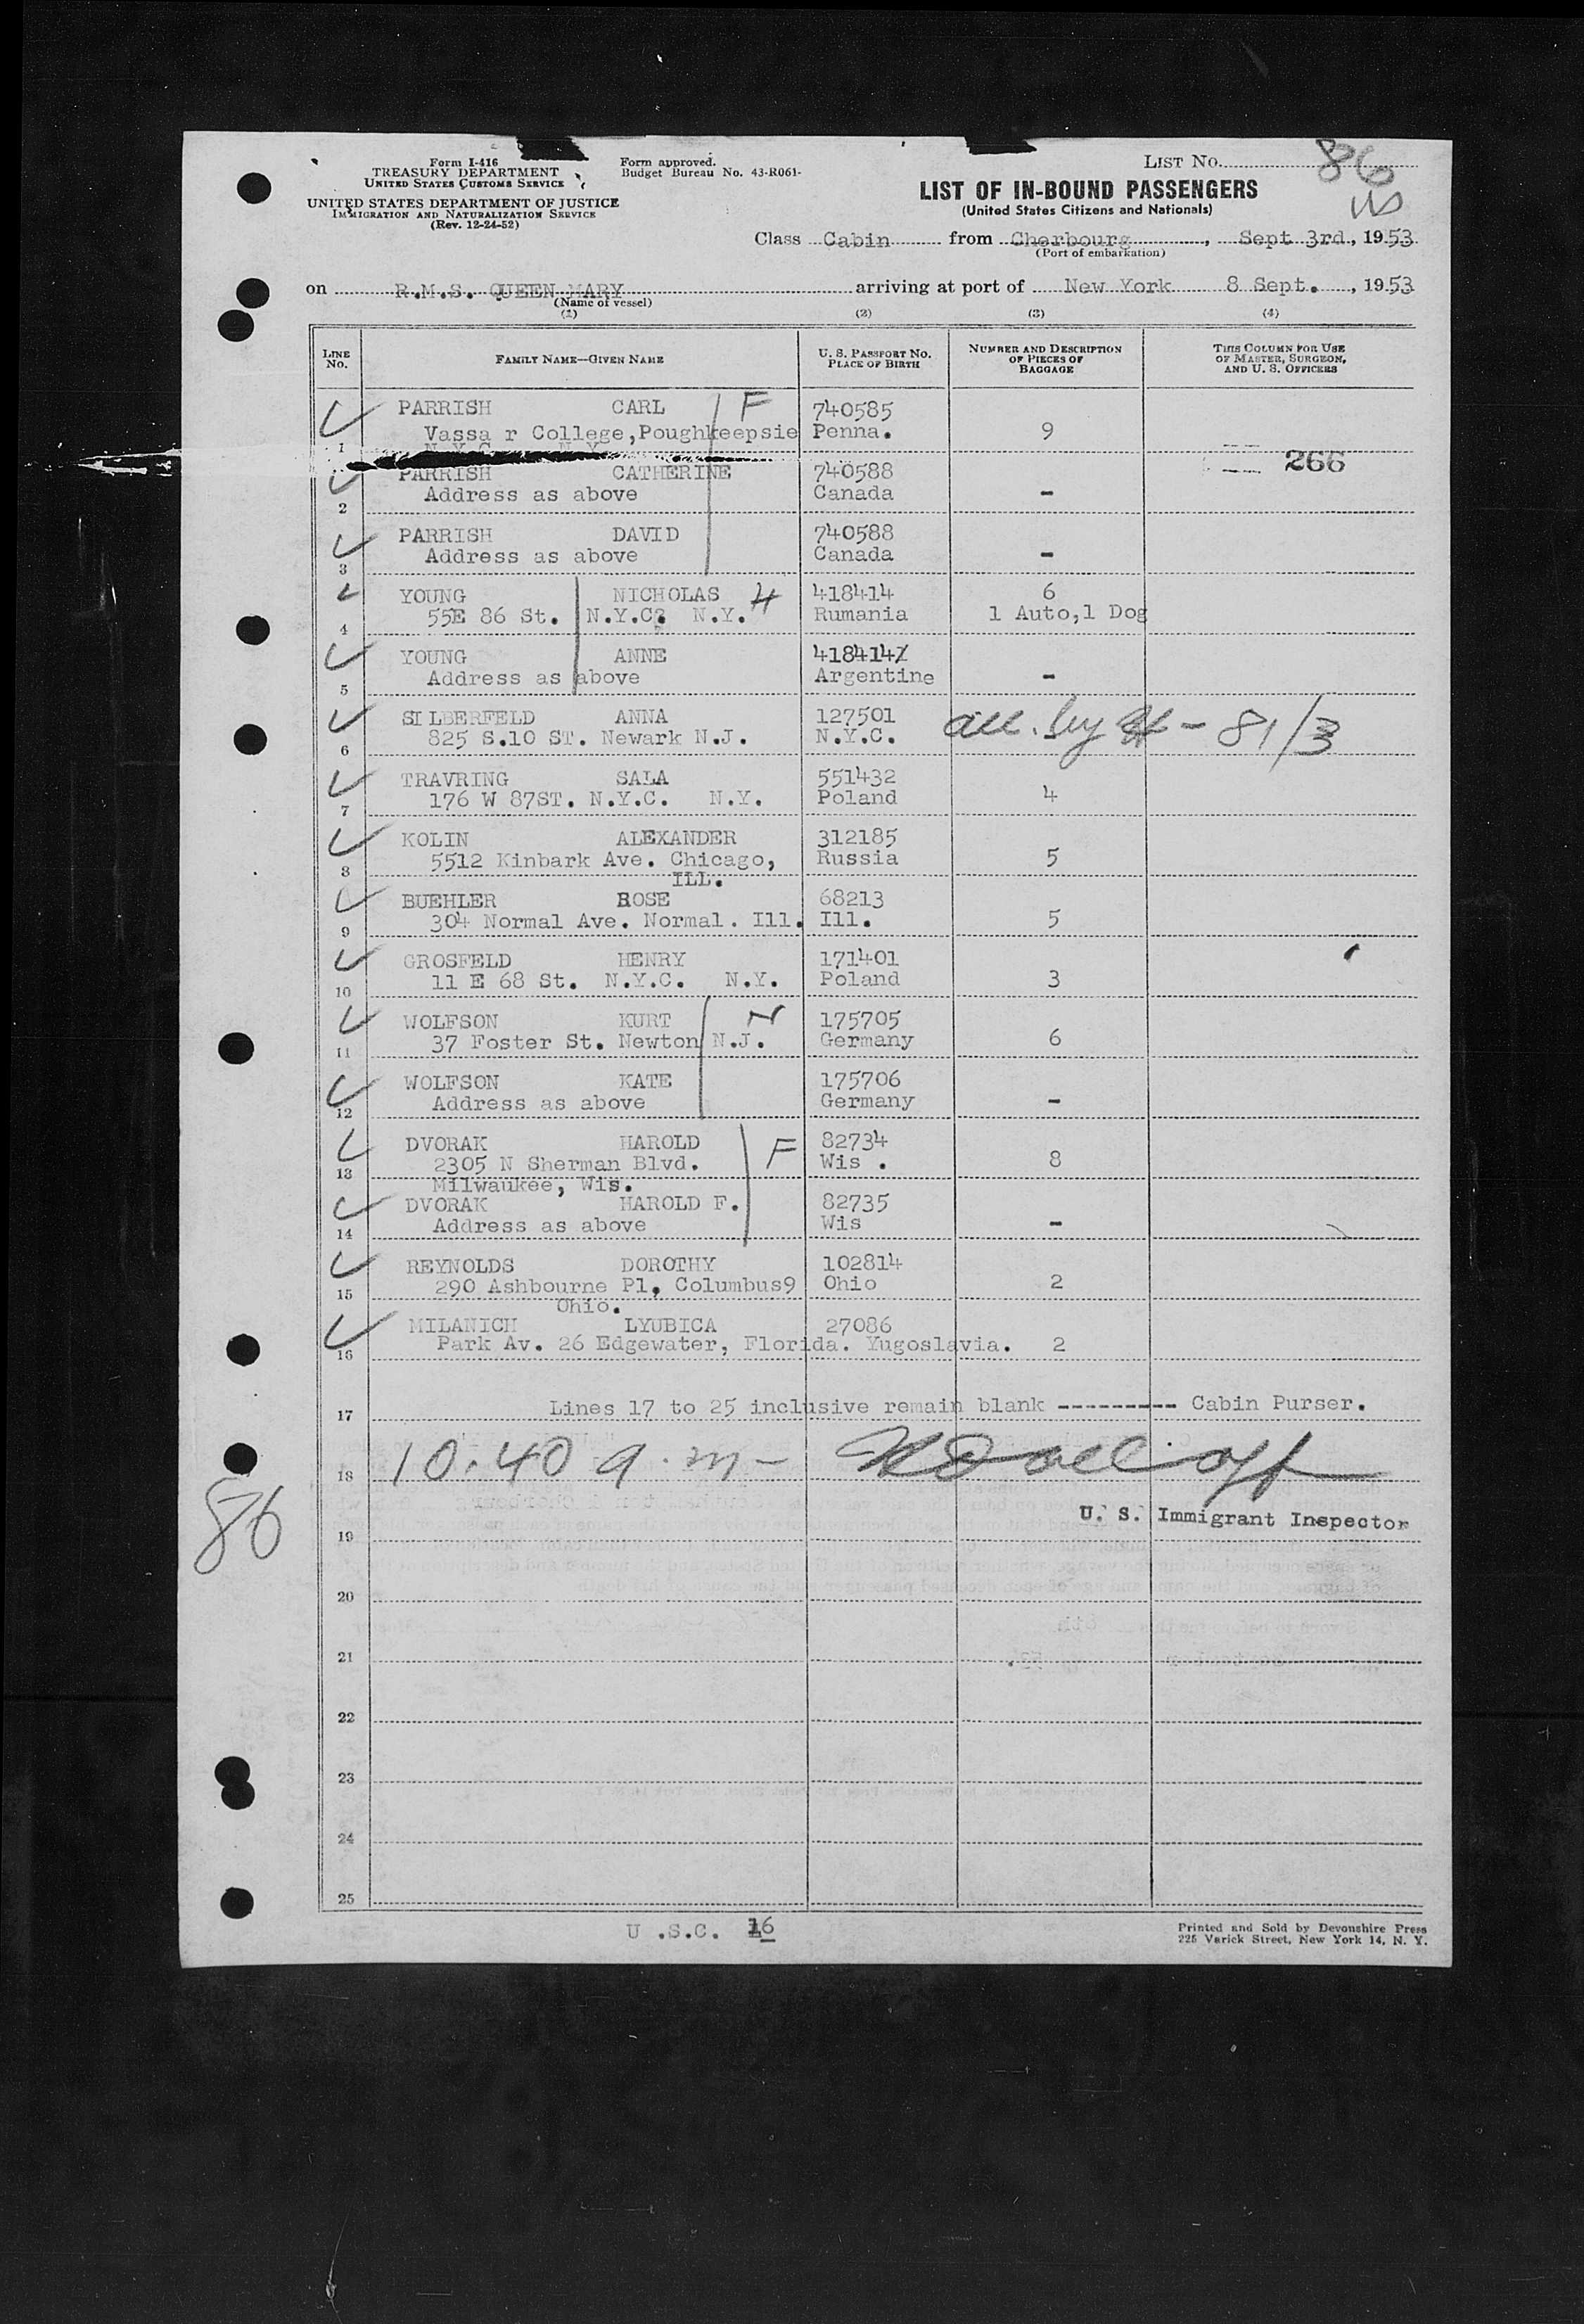 Form I-416
TREASURY DEPARTMENT
UNITED STATES CUSTOMS SERVICE
UNITED STATES DEPARTMENT OF JUSTICE
IMMIGRATION AND NATURALIZATION SERVICE
(Rev. 12-24-52)
Form approved.
Budget Bureau No. 43-R061-
LIST No. 86
LIST OF IN-BOUND PASSENGERS
(United States Citizens and Nationals)
Class Cabin from Cherbourg, Sept 3rd, 1953
(Port of embarkation)
on R.M.S. QUEEN MARY arriving at port of New York 8 Sept., 1953
(Name of vessel)
(1) (2) (3) (4)
LINE No. FAMILY NAME—GIVEN NAME U. S. PASSPORT No. PLACE OF BIRTH NUMBER AND DESCRIPTION OF PIECES OF BAGGAGE THIS COLUMN FOR USE OF MASTER, SURGEON, AND U. S. OFFICERS
PARRISH CARL F 740585
1 Vassa r College,Poughkeepsie Penna. 9
266
PARRISH CATHERINE 740588
Address as above Canada -
2
PARRISH DAVID 740588
Address as above Canada -
3
YOUNG NICHOLAS H 418414 6
4 55E 86 St. N.Y.C? N.Y. Rumania 1 Auto,1 Dog
YOUNG ANNE 418414
5 Address as above Argentine -
SILBERFELD ANNA 127501
6 825 S.10 ST. Newark N.J. N.Y.C. - 81/3
TRAVRING SALA 551432
7 176 W 87ST. N.Y.C. N.Y. Poland 4
KOLIN ALEXANDER 312185
8 5512 Kinbark Ave. Chicago, Russia 5
ILL.
BUEHLER ROSE 68213
9 304 Normal Ave. Normal. Ill. Ill. 5
GROSFELD HENRY 171401
10 11 E 68 St. N.Y.C. N.Y. Poland 3
WOLFSON KURT N 175705
11 37 Foster St. Newton N.J. Germany 6
WOLFSON KATE 175706
12 Address as above Germany -
DVORAK HAROLD F 82734
13 2305 N Sherman Blvd. Wis . 8
Milwaukee, Wis.
DVORAK HAROLD F. 82735
14 Address as above Wis -
REYNOLDS DOROTHY 102814
15 290 Ashbourne Pl, Columbus9 Ohio 2
Ohio.
MILANICH LYUBICA 27086
16 Park Av. 26 Edgewater, Florida. Yugoslavia. 2
17 Lines 17 to 25 inclusive remain blank --------- Cabin Purser.
18 10.40 a.m-
86
U. S. Immigrant Inspector
19
20
21
22
23
24
25
U .S.C. 16
Printed and Sold by Devonshire Press
225 Varick Street, New York 14, N. Y.